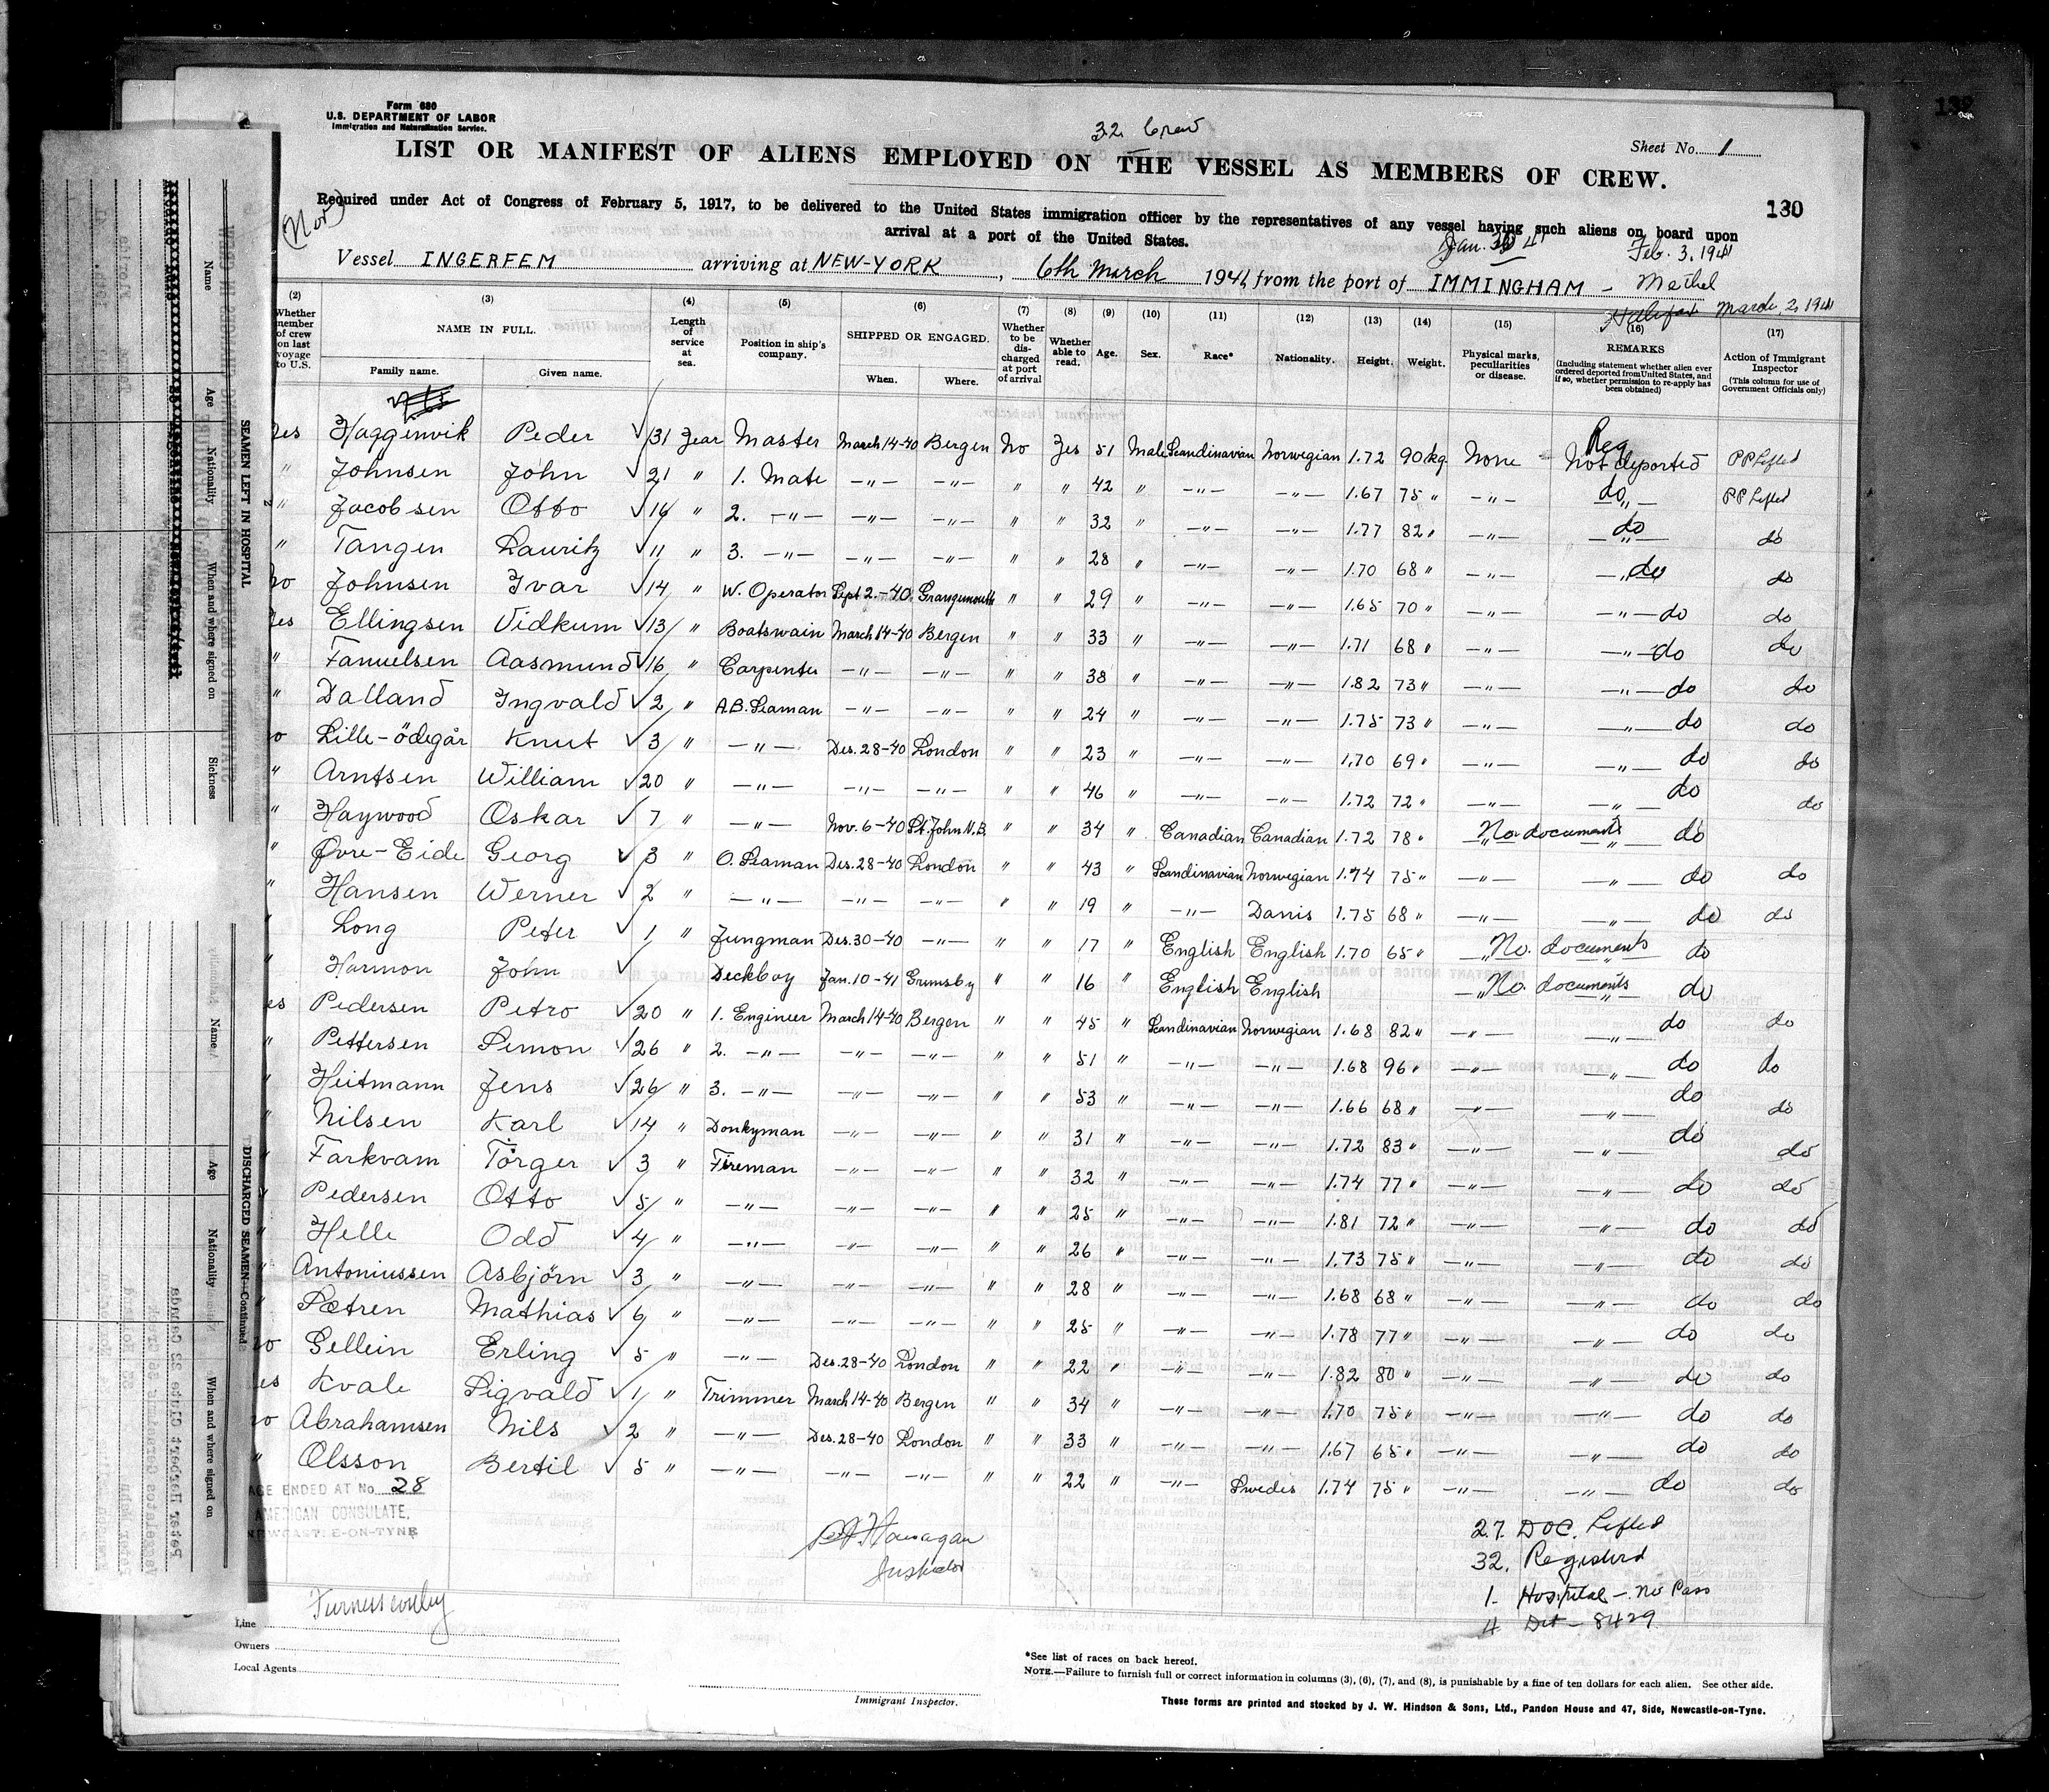 Form 680
U.S. DEPARTMENT OF LABOR
Immigration and Naturalization Service.
32 Crew
Sheet No. 1
LIST OR MANIFEST OF ALIENS EMPLOYED ON THE VESSEL AS MEMBERS OF CREW.
130
(Nor)
Required under Act of Congress of February 5, 1917, to be delivered to the United States immigration officer by the representatives of any vessel having such aliens on board upon
arrival at a port of the United States.
Feb. 3, 1941
Vessel INGERFEM arriving at NEW-YORK, 6th March 1941, from the port of IMMINGHAM - Methel
Halifax March 2, 1941
(2) (3) (4) (5) (6) (7) (8) (9) (10) (11) (12) (13) (14) (15) (16) (17)
Whether member of crew on last voyage to U.S.
NAME IN FULL.
Family name. Given name.
Length of service at sea.
Position in ship's company.
SHIPPED OR ENGAGED.
When. Where.
Whether to be discharged at port of arrival
Whether able to read.
Age. Sex. Race* Nationality. Height. Weight.
Physical marks, peculiarities or disease.
REMARKS
(Including statement whether alien ever ordered deported from United States, and if so, whether permission to re-apply has been obtained)
Action of Immigrant Inspector
(This column for use of Government Officials only)
Reg
Haggenvik Peder √ 31 Year Master March 14-40 Bergen No Yes 51 Male Scandinavian Norwegian 1.72 90 kg None Not deported PP Lifted
" Johnsen John √ 21 " 1. Mate —"— —"— " " 42 " —"— —"— 1.67 75 " —"— do PP Lifted
" Jacobsen Otto √ 16 " 2. —"— —"— —"— " " 32 " —"— —"— 1.77 82 " —"— do do
" Tangen Lauritz √ 11 " 3. —"— —"— —"— " " 28 " —"— —"— 1.70 68 " —"— do do
Johnsen Ivar √ 14 " W. Operator Sept 2.-40 Grangemouth " " 29 " —"— —"— 1.65 70 " —"— —"— do do
Ellingsen Vidkum √ 13 " Boatswain March 14-40 Bergen " " 33 " —"— —"— 1.71 68 " —"— —"— do do
" Fanuelsen Aasmund √ 16 " Carpenter —"— —"— " " 38 " —"— —"— 1.82 73 " —"— —"— do do
" Dalland Ingvald √ 2 " A.B. Seaman —"— —"— " " 24 " —"— —"— 1.75 73 " —"— —"— do do
Lille-ödegår Knut √ 3 " —"— Des. 28-40 London " " 23 " —"— —"— 1.70 69 " —"— —"— do do
" Arntsen William √ 20 " —"— —"— —"— " " 46 " —"— —"— 1.72 72 " —"— —"— do do
" Haywood Oskar √ 7 " —"— Nov. 6-40 St. John N.B. " " 34 " Canadian Canadian 1.72 78 " No documents do
" Øvre-Eide Georg √ 3 " O. Seaman Des. 28-40 London " " 43 " Scandinavian Norwegian 1.74 75 " —"— —"— do do
" Hansen Werner √ 2 " —"— —"— —"— " " 19 " —"— Danis 1.75 68 " —"— —"— do do
" Long Peter √ 1 " Jungman Des. 30-40 —"— " " 17 " English English 1.70 65 " No documents do
" Harmon John √ Deckboy Jan. 10-41 Grimsby " " 16 " English English No documents do
Pedersen Petro √ 20 " 1. Engineer March 14-40 Bergen " " 45 " Scandinavian Norwegian 1.68 82 " —"— —"— do do
" Pettersen Simon √ 26 " 2. —"— —"— —"— " " 51 " —"— —"— 1.68 96 " —"— —"— do do
" Heitmann Jens √ 26 " 3. —"— —"— —"— " " 53 " —"— —"— 1.66 68 " —"— —"— do do
" Nilsen Karl √ 14 " Donkyman —"— —"— " " 31 " —"— —"— 1.72 83 " —"— —"— do do
" Farkvam Torger √ 3 " Fireman —"— —"— " " 32 " —"— —"— 1.74 77 " —"— —"— do do
" Pedersen Otto √ 5 " —"— —"— —"— " " 25 " —"— —"— 1.81 72 " —"— —"— do do
" Helle Odd √ 4 " —"— —"— —"— " " 26 " —"— —"— 1.73 75 " —"— —"— do do
" Antoniussen Asbjörn √ 3 " —"— —"— —"— " " 28 " —"— —"— 1.68 68 " —"— —"— do do
" Sætren Mathias √ 6 " —"— —"— —"— " " 25 " —"— —"— 1.78 77 " —"— —"— do do
Gellein Erling √ 5 " —"— Des. 28-40 London " " 22 " —"— —"— 1.82 80 " —"— —"— do do
Kvale Sigvald √ 1 " Trimmer March 14-40 Bergen " " 34 " —"— —"— 1.70 75 " —"— —"— do do
Abrahamsen Nils √ 2 " —"— Des. 28-40 London " " 33 " —"— —"— 1.67 65 " —"— —"— do do
" Olsson Bertil √ 5 " —"— —"— —"— " " 22 " —"— Swedis 1.74 75 " —"— —"— do do
AGE ENDED AT No. 28
AMERICAN CONSULATE,
NEWCASTLE-ON-TYNE
Inspector
27. DOC. Lifted
32. Registerd
1. Hospital - No Pass
4 Det - 8429
Line
Owners
Local Agents
Immigrant Inspector.
*See list of races on back hereof.
NOTE.—Failure to furnish full or correct information in columns (3), (6), (7), and (8), is punishable by a fine of ten dollars for each alien. See other side.
These forms are printed and stocked by J. W. Hindson & Sons, Ltd., Pandon House and 47, Side, Newcastle-on-Tyne.
SEAMEN LEFT IN HOSPITAL
Name Age Nationality When and where signed on Sickness
DISCHARGED SEAMEN—Continued
Name Age Nationality When and where signed on